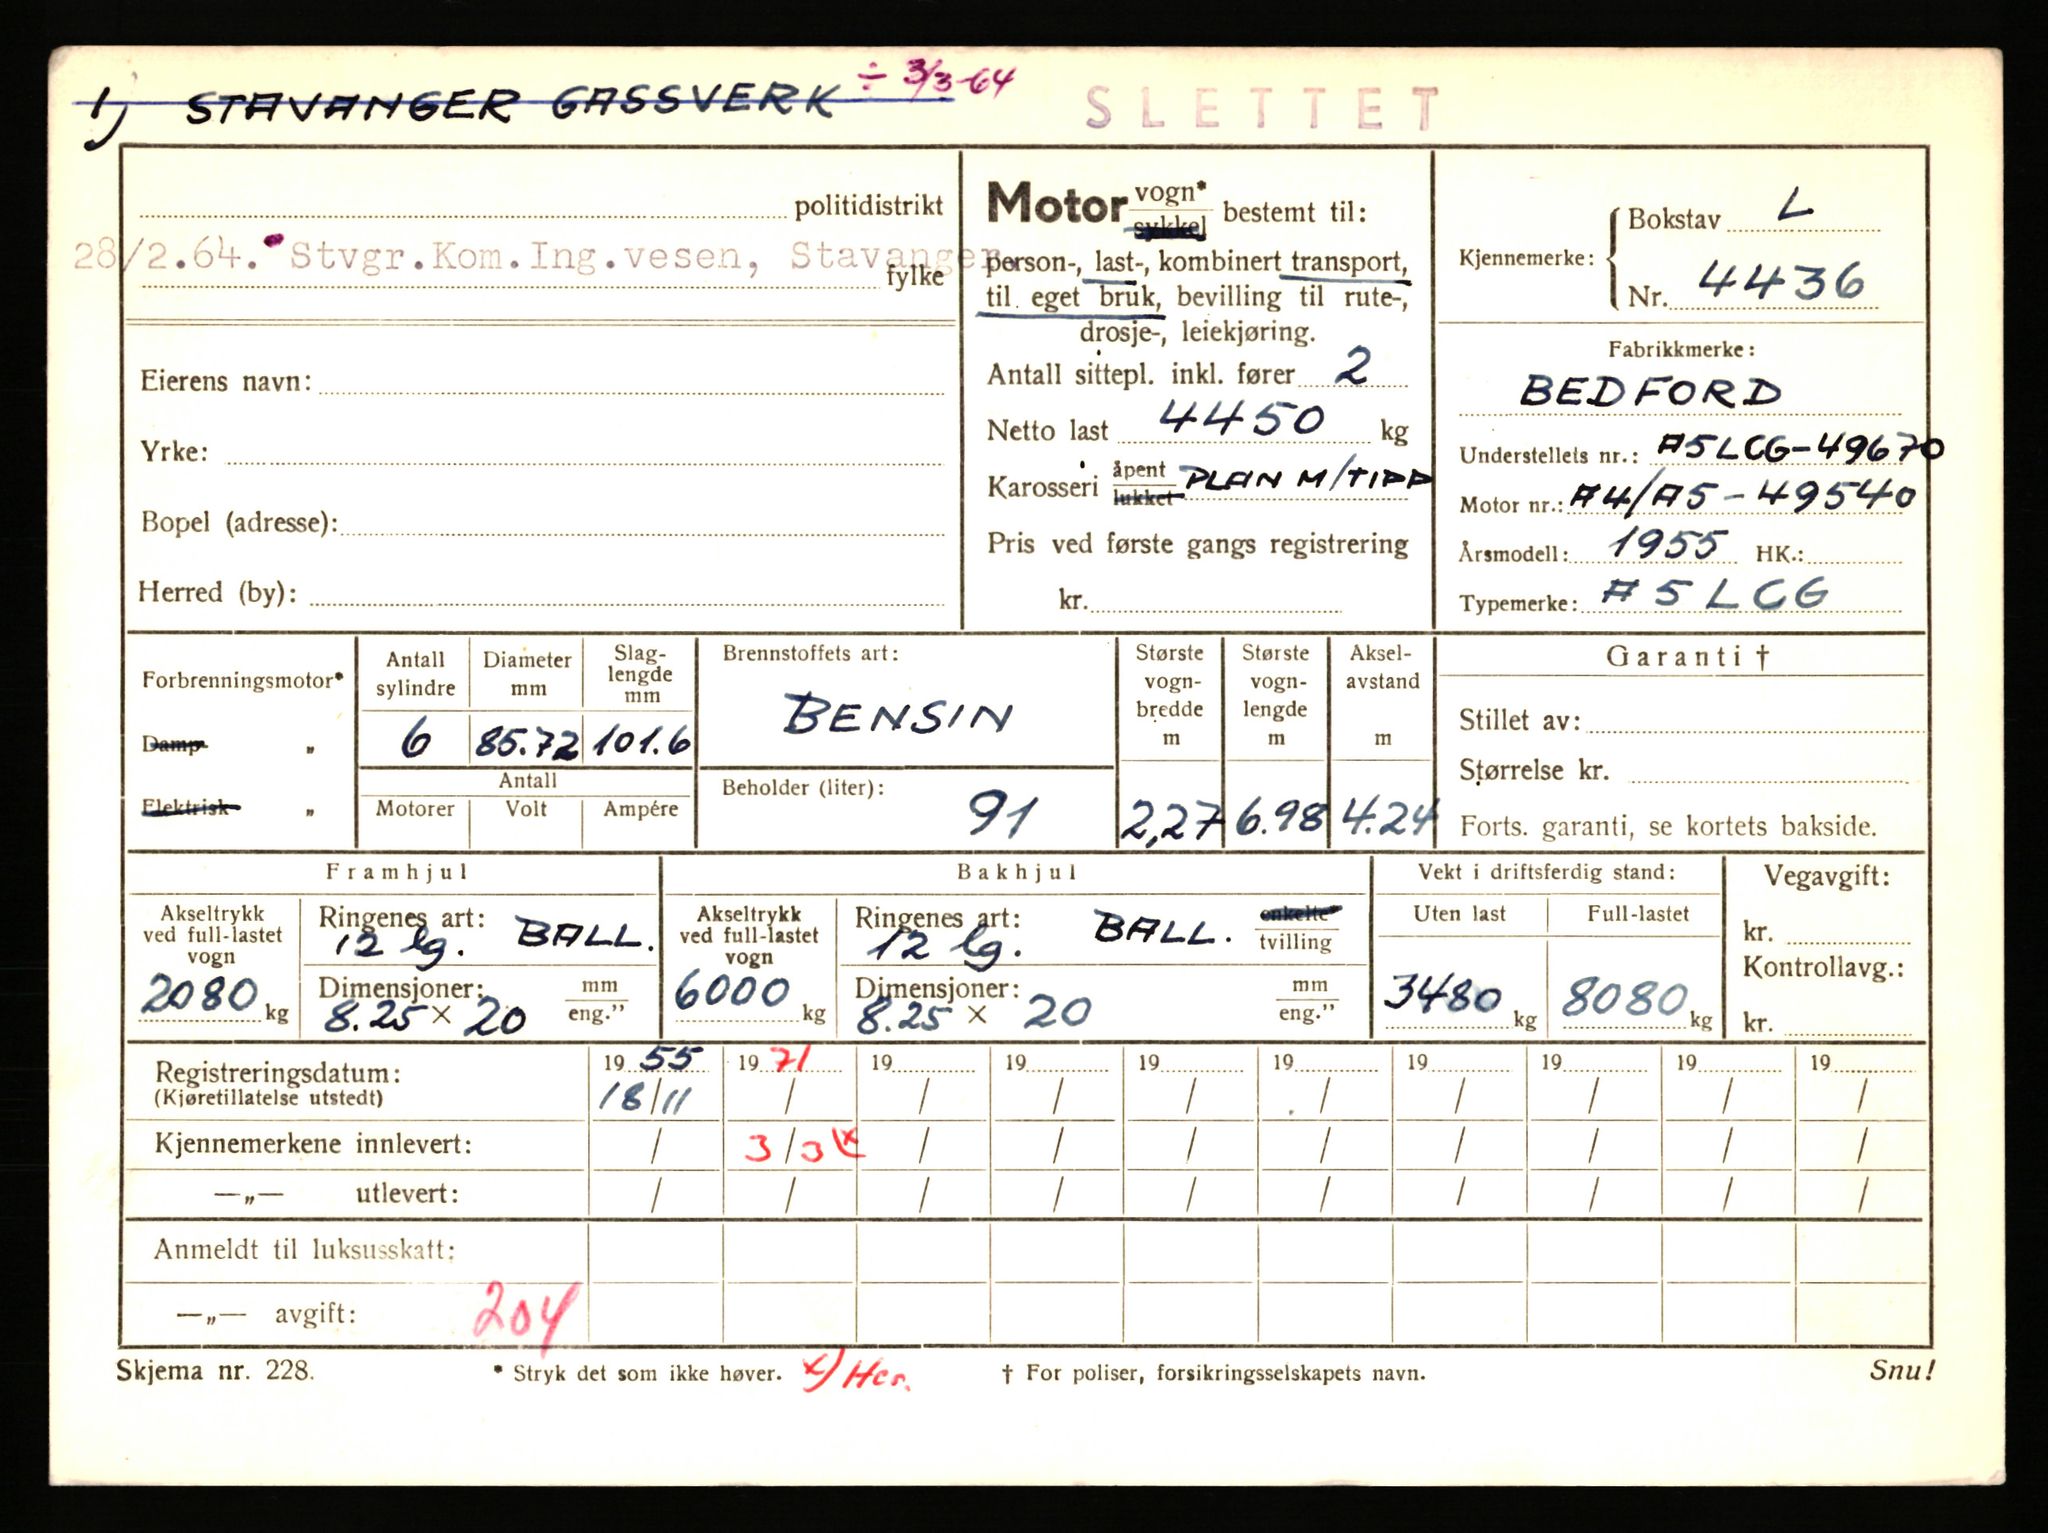 1) STAVANGER GASSVERK ÷ 3/3-64
SLETTET
politidistrikt
28/2.64. Stvgr.Kom.Ing.vesen, Stavanger.
fylke
Eierens navn:
Yrke:
Bopel (adresse):
Herred (by):
Motor vogn* sykkel bestemt til:
person-, last-, kombinert transport,
til eget bruk, bevilling til rute-,
drosje-, leiekjøring.
Antall sittepl. inkl. fører 2
Netto last 4450 kg
Karosseri åpent lukket PLAN M/TIPP
Pris ved første gangs registrering
kr.
Kjennemerke: Bokstav L
Nr. 4436
Fabrikkmerke:
BEDFORD
Understellets nr.: A5LCG-49670
Motor nr.: A4/A5-49540
Årsmodell: 1955 HK.:
Typemerke: A5LCG
Forbrenningsmotor*
Damp „
Elektrisk „
Antall sylindre 6
Diameter mm 85.72
Slag-lengde mm 101.6
Antall
Motorer Volt Ampére
Brennstoffets art:
BENSIN
Beholder (liter):
91
Største vogn-bredde m 2,27
Største vogn-lengde m 6.98
Aksel-avstand m 4.24
Garanti †
Stillet av:
Størrelse kr.
Forts. garanti, se kortets bakside.
Framhjul
Akseltrykk ved full-lastet vogn
2080 kg
Ringenes art:
12 lg. BALL.
Dimensjoner: mm eng.”
8.25 × 20
Bakhjul
Akseltrykk ved full-lastet vogn
6000 kg
Ringenes art: enkelte* tvilling
12 lg. BALL.
Dimensjoner: mm eng.”
8.25 × 20
Vekt i driftsferdig stand:
Uten last Full-lastet
3480 kg 8080 kg
Vegavgift:
kr.
Kontrollavg.:
kr.
Registreringsdatum: 19 55 19 71 19 19 19 19 19 19 19 19
(Kjøretillatelse utstedt) 18/11 / / / / / / / / /
Kjennemerkene innlevert: / 3/3 x) / / / / / / / /
—„— utlevert: / / / / / / / / / /
Anmeldt til luksusskatt:
—„— avgift: 204
Skjema nr. 228.
* Stryk det som ikke høver.
x) Hcr.
† For poliser, forsikringsselskapets navn.
Snu!